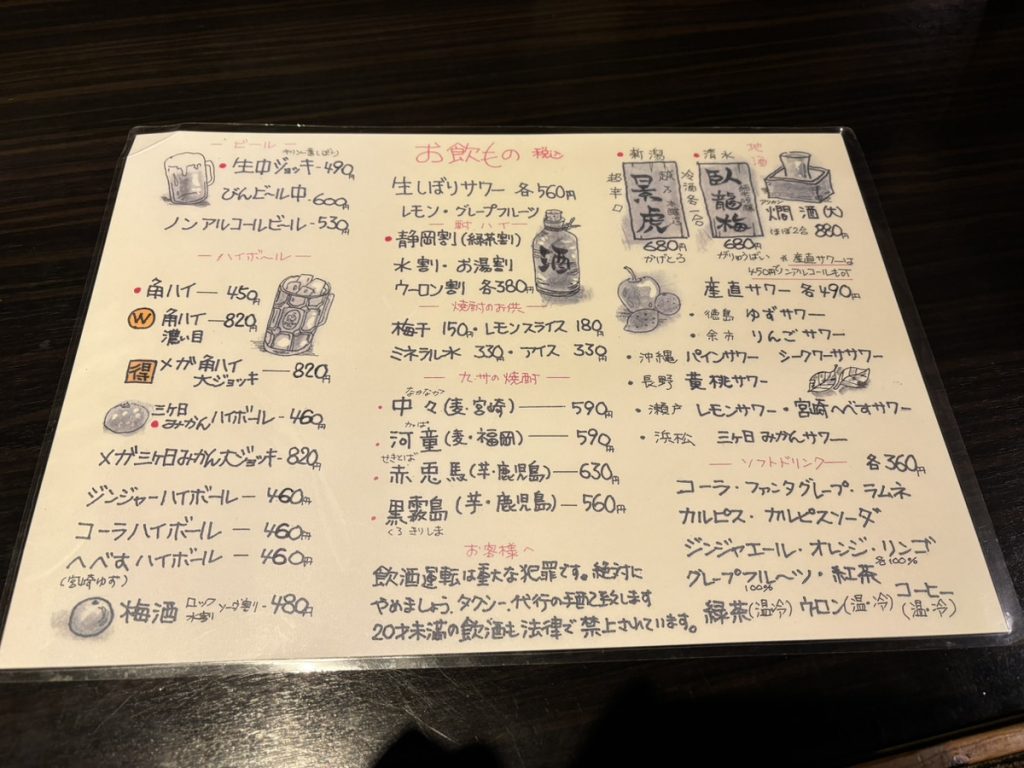 ビール
生中ジョッキ-490円
びんビール中 600円
ノンアルコールビール-530円
ハイボール
角ハイ-450円
W 角ハイ-820円
濃い目
得 メガ角ハイ
大ジョッキ-820円
三ケ日
みかんハイボール-460円
メガ三ケ日みかん大ジョッキー820円
ジンジャーハイボール-460円
コーラハイボール-460円
へべすハイボール-460円
(宮崎ゆず)
梅酒 ロック ソーダ割り-480円
水割り
お飲もの 税込
生しぼりサワー 各560円
レモン・グレープフルーツ
酎ハイ
静岡割(緑茶割)
水割・お湯割
ウーロン割 各380円
酒
焼酎のお供
梅干 150円・レモンスライス 180円
ミネラル水 330円・アイス 330円
九州の焼酎
なかなか
中々(麦・宮崎)-590円
かっぱ
河童(麦・福岡)-590円
せきとば
赤兎馬(芋・鹿児島)-630円
黒霧島(芋・鹿児島)-560円
くろきりしま
お客様へ
飲酒運転は重大な犯罪です。絶対に
やめましょう。タクシー、代行の手配致します
20才未満の飲酒も法律で禁止されています。
地酒
新潟
超辛口
越乃
景虎
本醸造
680円
かげとら
冷酒各一合
清水
臥龍梅
純米吟醸
680円
がりゅうばい
アツカン
燗酒(大)
ほぼ2合 880円
※産直サワーは
450円ノンアルコールも可
産直サワー各490円
・徳島 ゆずサワー
・余市 りんごサワー
・沖縄 パインサワー シークワーササワー
・長野 黄桃サワー
・瀬戸 レモンサワー・宮崎へべすサワー
・浜松 三ケ日みかんサワー
ソフトドリンク 各360円
コーラ・ファンタグレープ・ラムネ
カルピス・カルピスソーダ
ジンジャエール・オレンジ・リンゴ
各100%
グレープフルーツ・紅茶
100%
緑茶(温・冷) ウロン(温・冷) コーヒー(温・冷)